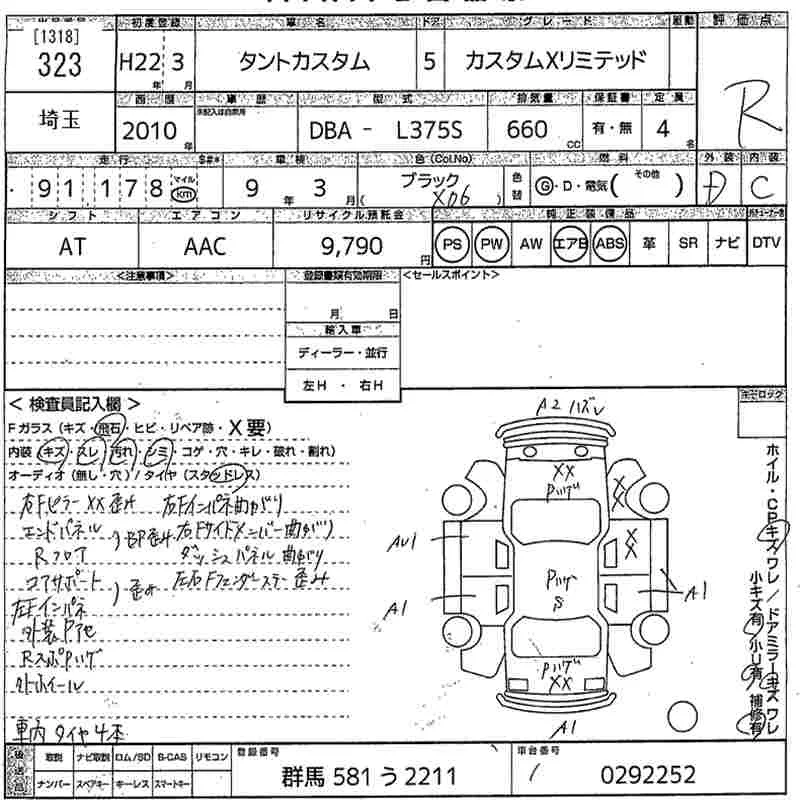 初度登録 車名 ドア グレード 駆動 評価点
[1318]
323 H22年 3月 タントカスタム 5 カスタムXリミテッド R
西暦 車歴 型式 排気量 保証書 定員
埼玉 2010年 DBA - L375S 660cc 有・無 4名
走行 車検 色(Col.No) 燃料 外装 内装
91,178 マイル km 9年 3月 ブラック ( X06 ) 色替 G・D・電気( その他 ) D C
シフト エアコン リサイクル預託金 純正装備品
AT AAC 9,790円 PS PW AW エアB ABS 革 SR ナビ DTV
<注意事項> 登録書類有効期限 <セールスポイント>
月 日
輸入車
ディーラー・並行
左H ・ 右H
< 検査員記入欄 >
Fガラス (キズ・飛石・ヒビ・リペア跡・X要)
内装 (キズ・スレ・汚れ・シミ・コゲ・穴・キレ・破れ・割れ)
オーディオ (無し・穴) / タイヤ (スタッドレス)
右Fピラー XX歪み 右Fインパネ曲がり
エンドパネル 右Fサイドメンバー曲がり
Rフロア ダッシュパネル曲がり
コアサポート 歪み 左右Fフェンダーステー歪み
左Fインパネ
外装Pアセ
RスポPハゲ
外ホイール
車内 タイヤ4本
A2 ハズレ
XX
Pハゲ
XX
XX
AU1
A1
Pハゲ
S
A1
Pハゲ
XX
A1
ホイル・CPキズワレ/ドアミラーキズワレ
小キズ有 小凹有 補修有
後送品 取説 ナビ取説 ロム/SD B-CAS リモコン 登録番号 車台番号
ナンバー スペアキー キーレス スマートキー 群馬 581 う 2211 0292252